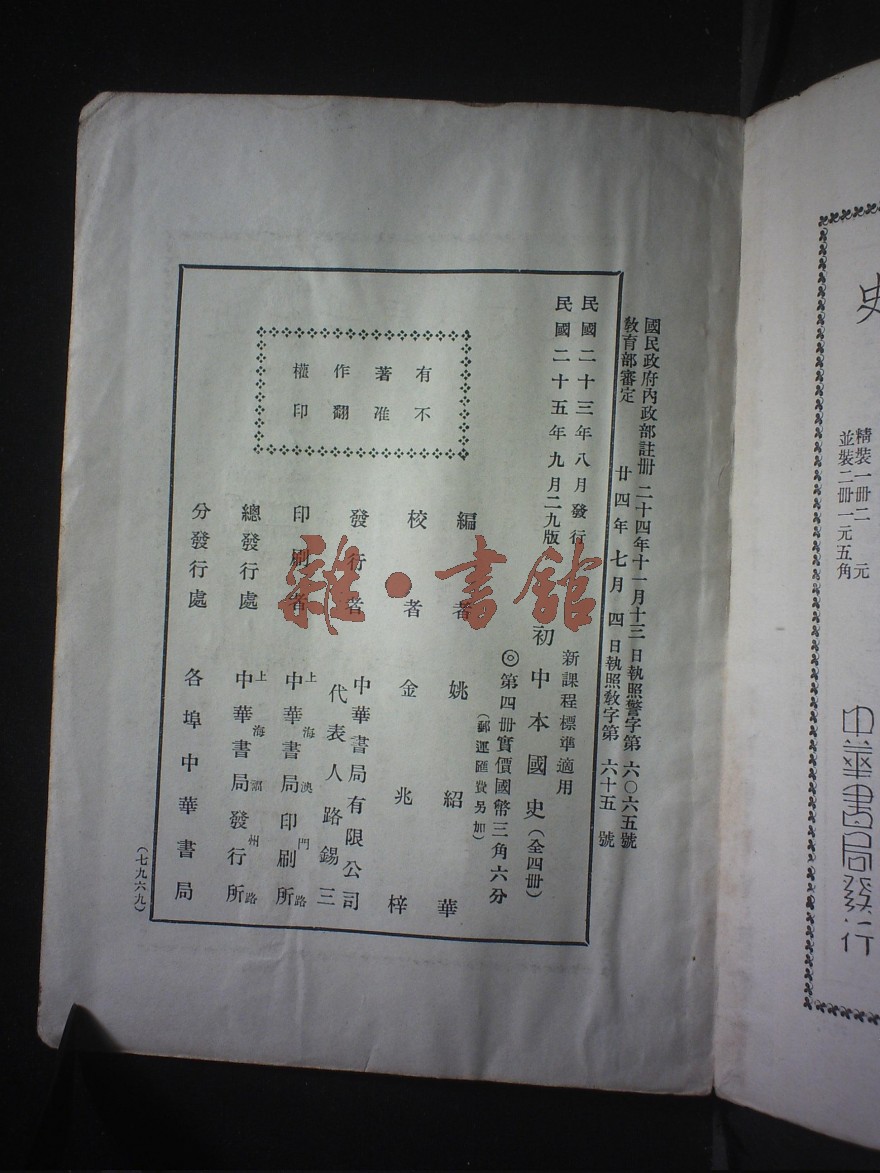 國民政府內政部註册 二十四年十一月十三日執照警字第六〇六五號
教育部審定 廿四年七月四日執照教字第六十五號
民國二十三年八月發行
民國二十五年九月二九版
新課程標準適用
初中本國史(全四册)
◎第四册實價國幣三角六分
(郵運匯費另加)
有不
著准
作翻
權印
編者 姚紹華
校者 金兆梓
發行者 中華書局有限公司
代表人路錫三
印刷者 上海澳門路
中華書局印刷所
總發行處 上海福州路
中華書局發行所
分發行處 各埠中華書局
(七九六九)
雜·書館
史
精裝一册二元
並裝二册一元五角
中華書局發行